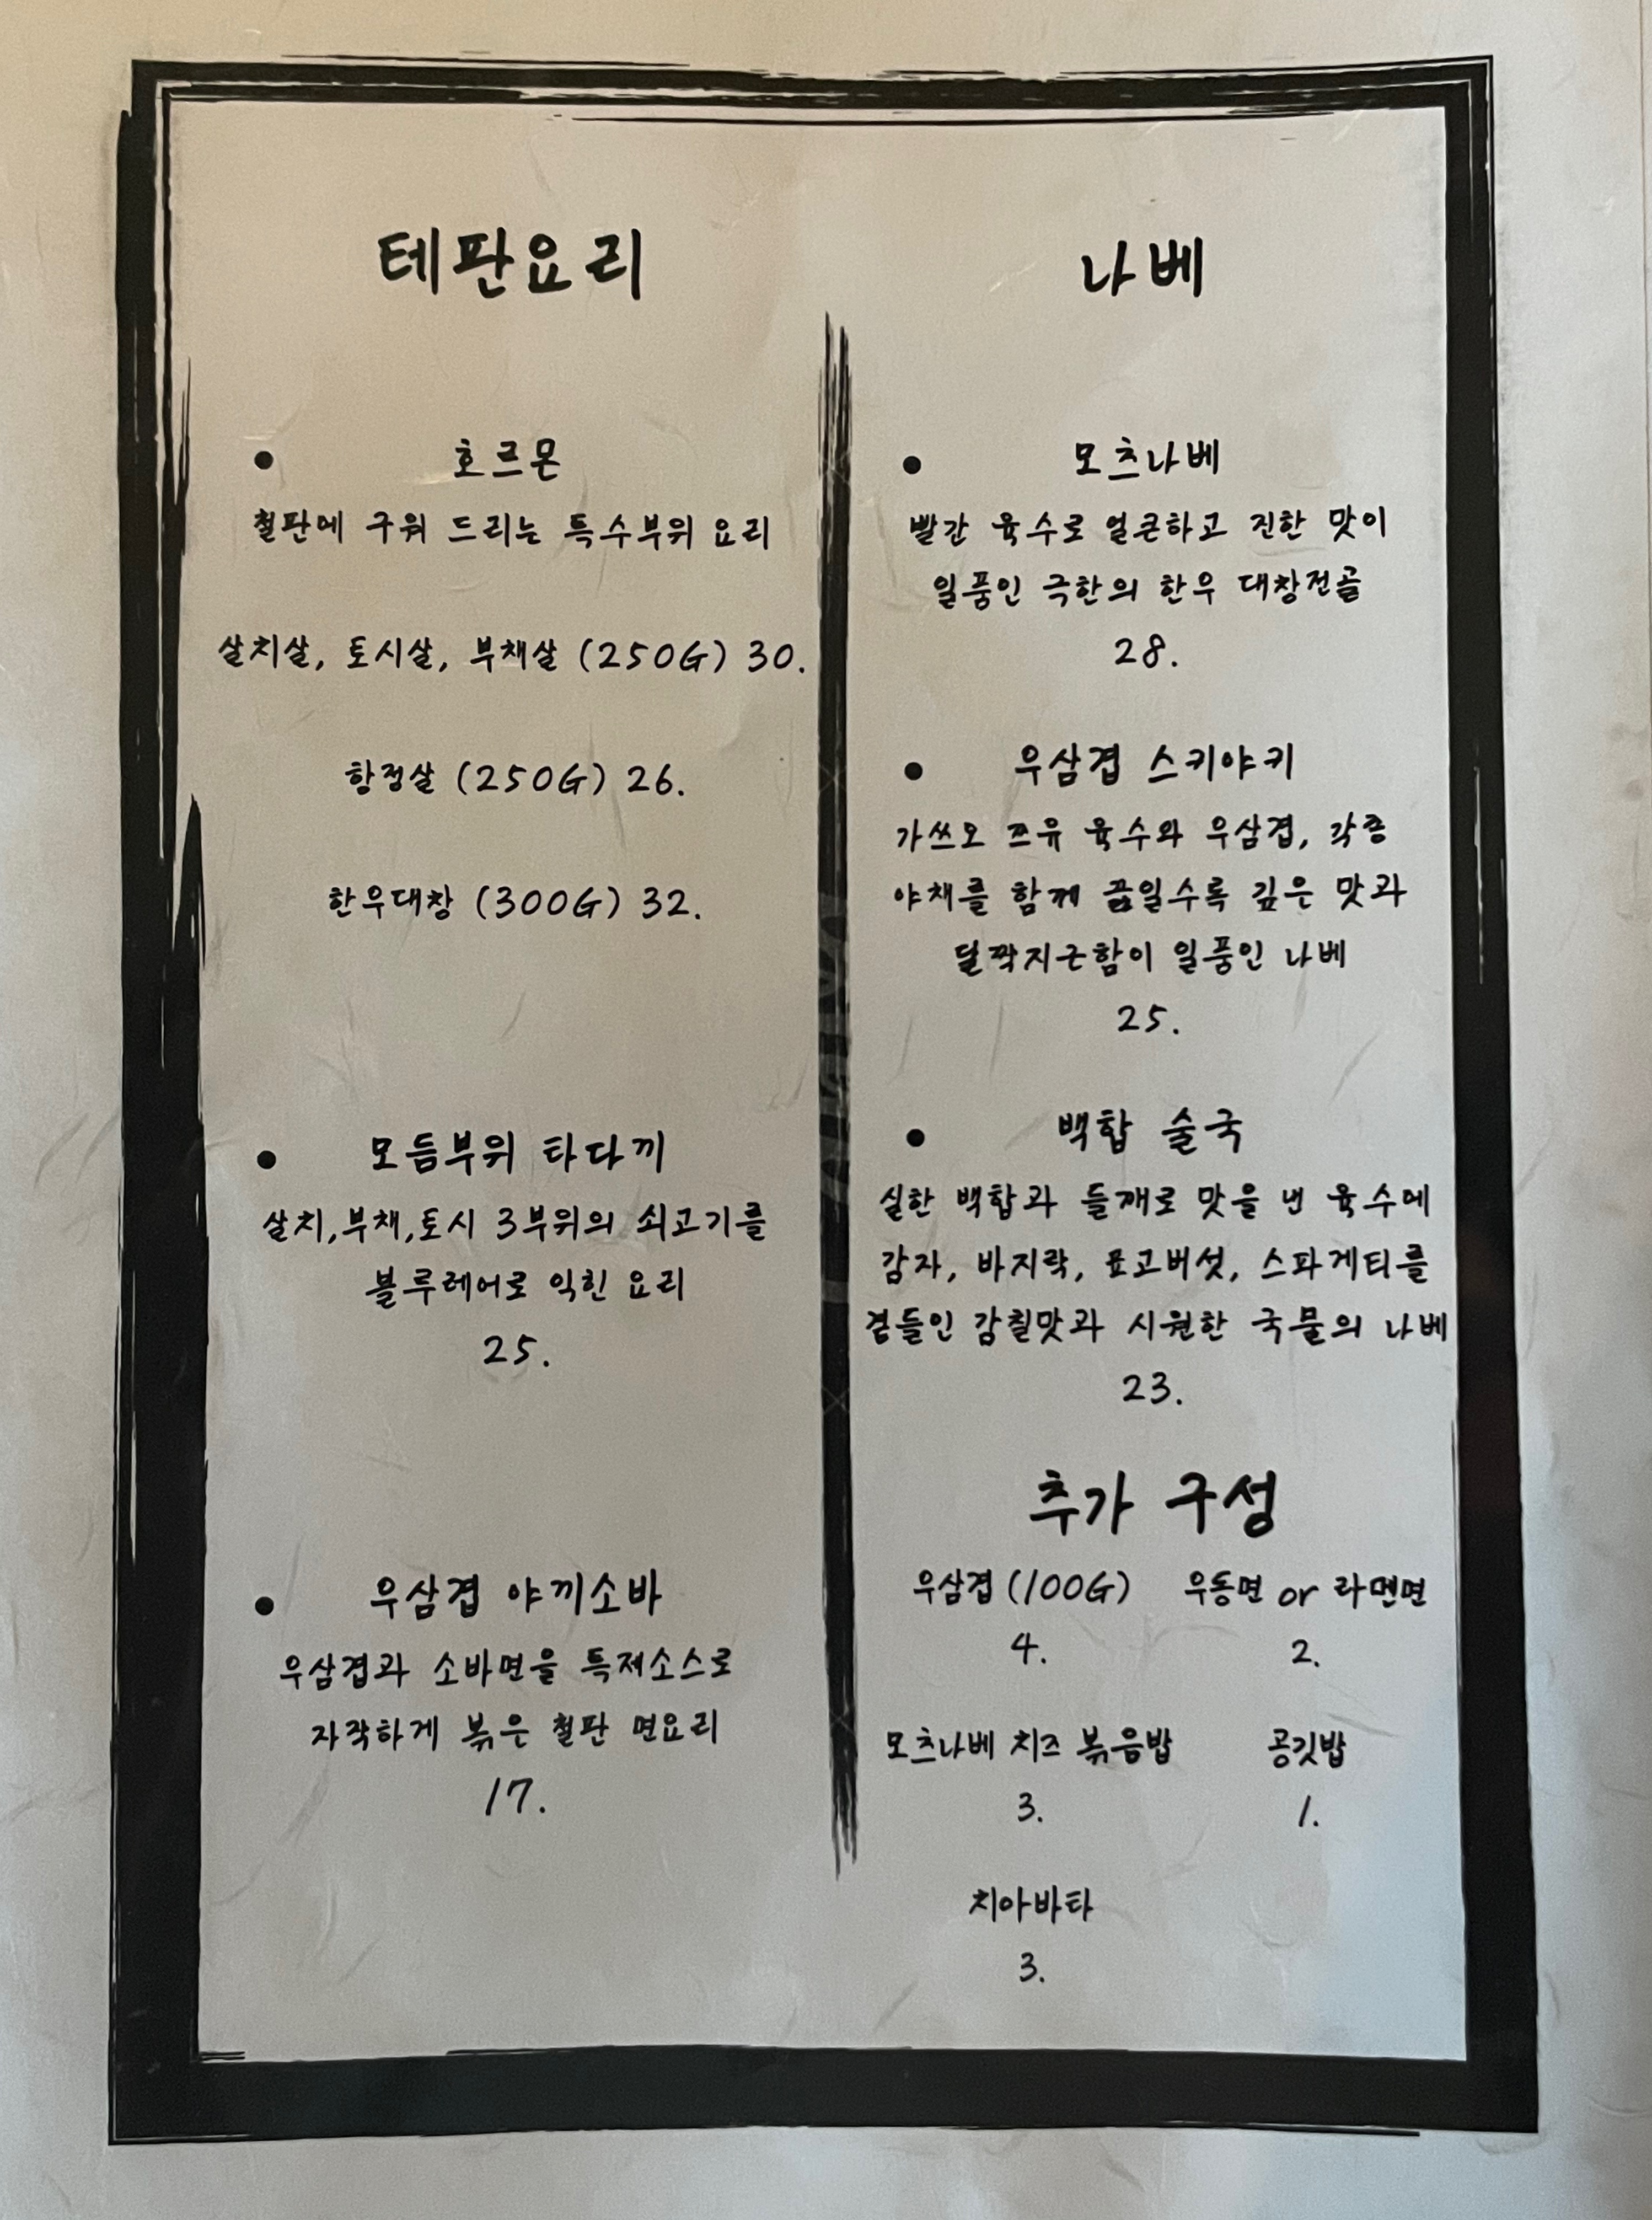 테판요리
● 호르몬
철판에 구워 드리는 특수부위 요리
살치살, 토시살, 부채살 (250G) 30.
항정살 (250G) 26.
한우대창 (300G) 32.
● 모듬부위 타다끼
살치,부채,토시 3부위의 쇠고기를
블루레어로 익힌 요리
25.
● 우삼겹 야끼소바
우삼겹과 소바면을 특제소스로
자작하게 볶은 철판 면요리
17.
나베
● 모츠나베
빨간 육수로 얼큰하고 진한 맛이
일품인 극한의 한우 대창전골
28.
● 우삼겹 스키야키
가쓰오 쯔유 육수와 우삼겹, 각종
야채를 함께 끓일수록 깊은 맛과
달짝지근함이 일품인 나베
25.
● 백합 술국
실한 백합과 들깨로 맛을 낸 육수에
감자, 바지락, 표고버섯, 스파게티를
곁들인 감칠맛과 시원한 국물의 나베
23.
추가 구성
우삼겹 (100G) 우동면 or 라멘면
4. 2.
모츠나베 치즈 볶음밥 공깃밥
3. 1.
치아바타
3.